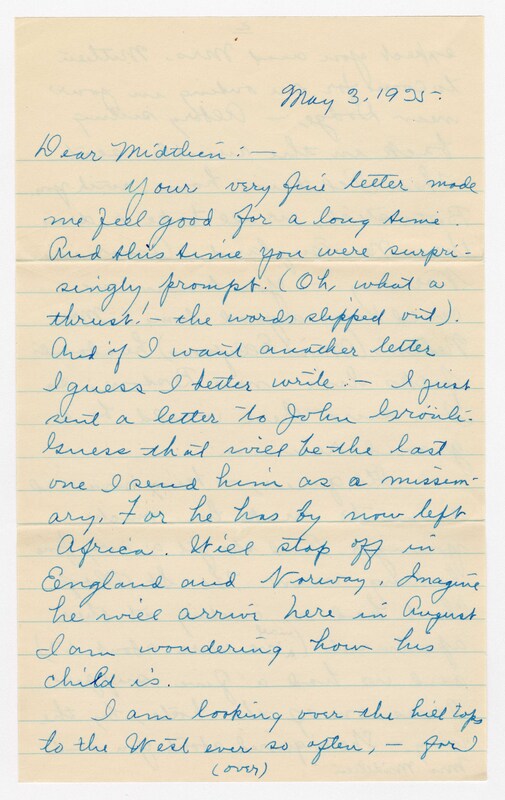 May 3, 1925.
Dear Midthun:—
Your very fine letter made
me feel good for a long time.
And this time you were surpri-
singly prompt. (Oh, what a
thrust! — the words slipped out).
And if I want another letter
I guess I better write:— I just
sent a letter to John
Guess that will be the last
one I send him as a mission-
ary. For he has by now left
Africa. Will stop off in
England and Norway. Imagine
he will arrive here in August
I am wondering how his
child is.
I am looking over the hill tops
to the West ever so often, — for
(over)